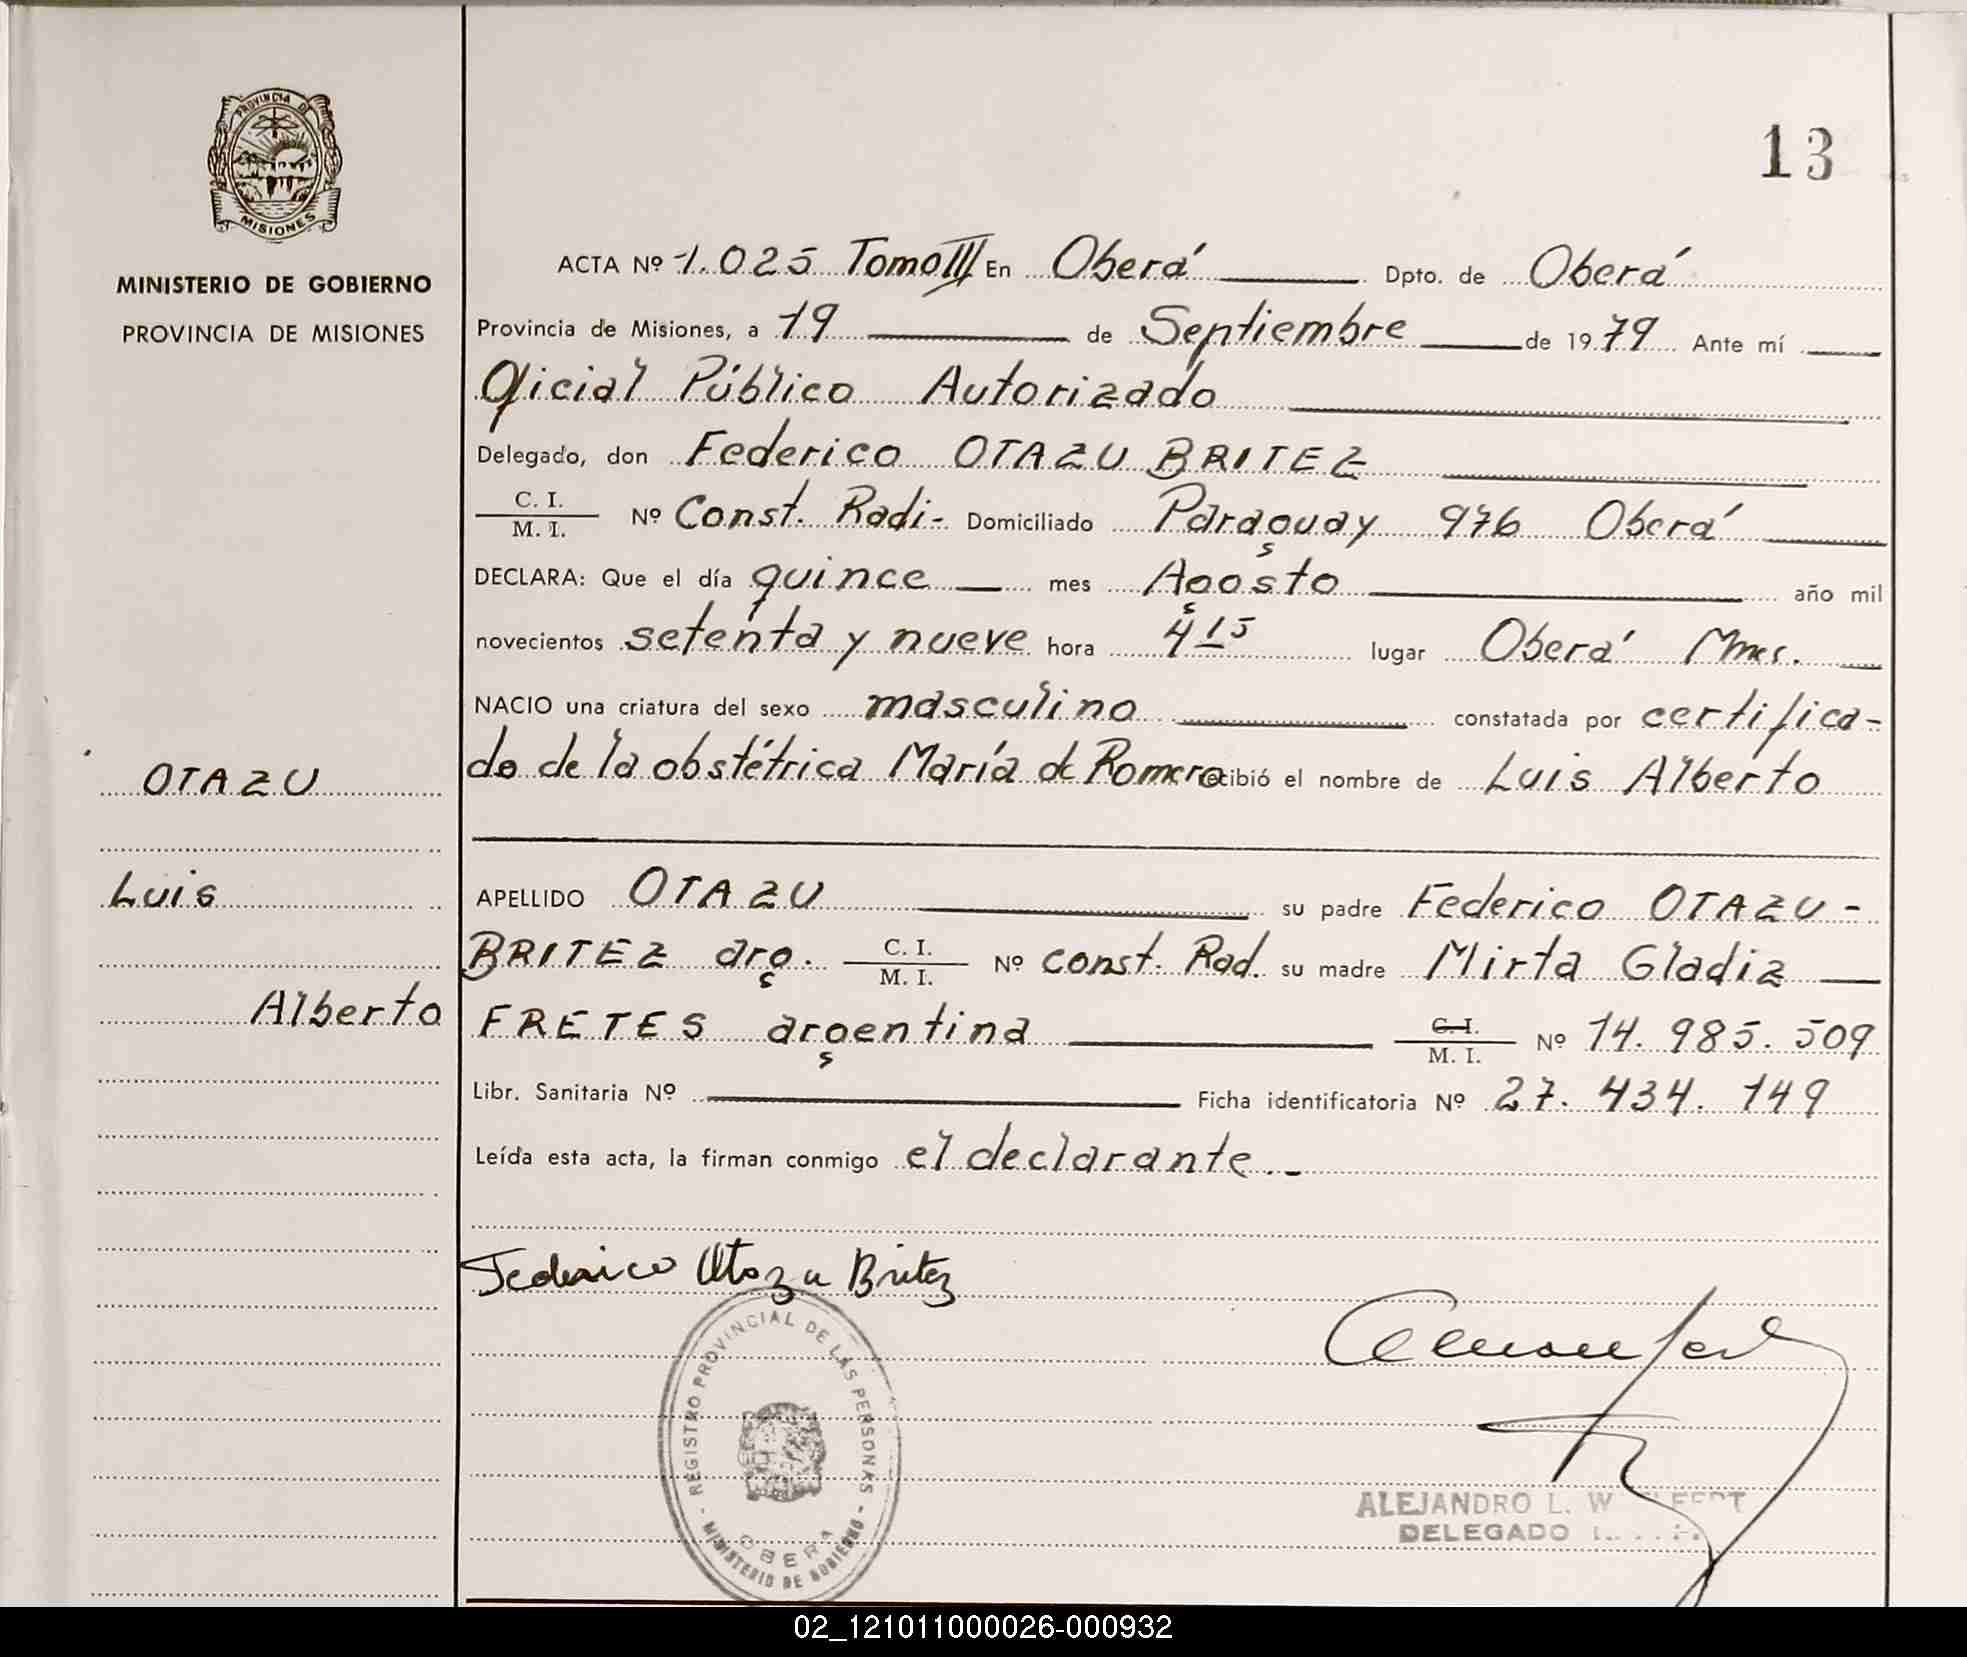 PROVINCIA DE
MISIONES
MINISTERIO DE GOBIERNO
PROVINCIA DE MISIONES
13
ACTA Nº 1.025 Tomo III En Oberá Dpto. de Oberá
Provincia de Misiones, a 19 de Septiembre de 1979 Ante mí
Oficial Público Autorizado
Delegado, don Federico OTAZU BRITEZ
C. I.
M. I.
Nº Const. Radi- Domiciliado Paraguay 976 Oberá
DECLARA: Que el día quince mes Agosto año mil
novecientos setenta y nueve hora 4 15 lugar Oberá Mnes.
NACIO una criatura del sexo masculino constatada por certifica-
do de la obstétrica María de Romero recibió el nombre de Luis Alberto
OTAZU
Luis
Alberto
APELLIDO OTAZU su padre Federico OTAZU-
BRITEZ arg. C. I. M. I. Nº const. Rad. su madre Mirta Gladiz
FRETES argentina C. I. M. I. Nº 14.985.509
Libr. Sanitaria Nº Ficha identificatoria Nº 27.434.149
Leída esta acta, la firman conmigo el declarante.-
Federico Otazu Britez
REGISTRO PROVINCIAL DE LAS PERSONAS
OBERA
MINISTERIO DE GOBIERNO
ALEJANDRO L.
DELEGADO
02_121011000026-000932